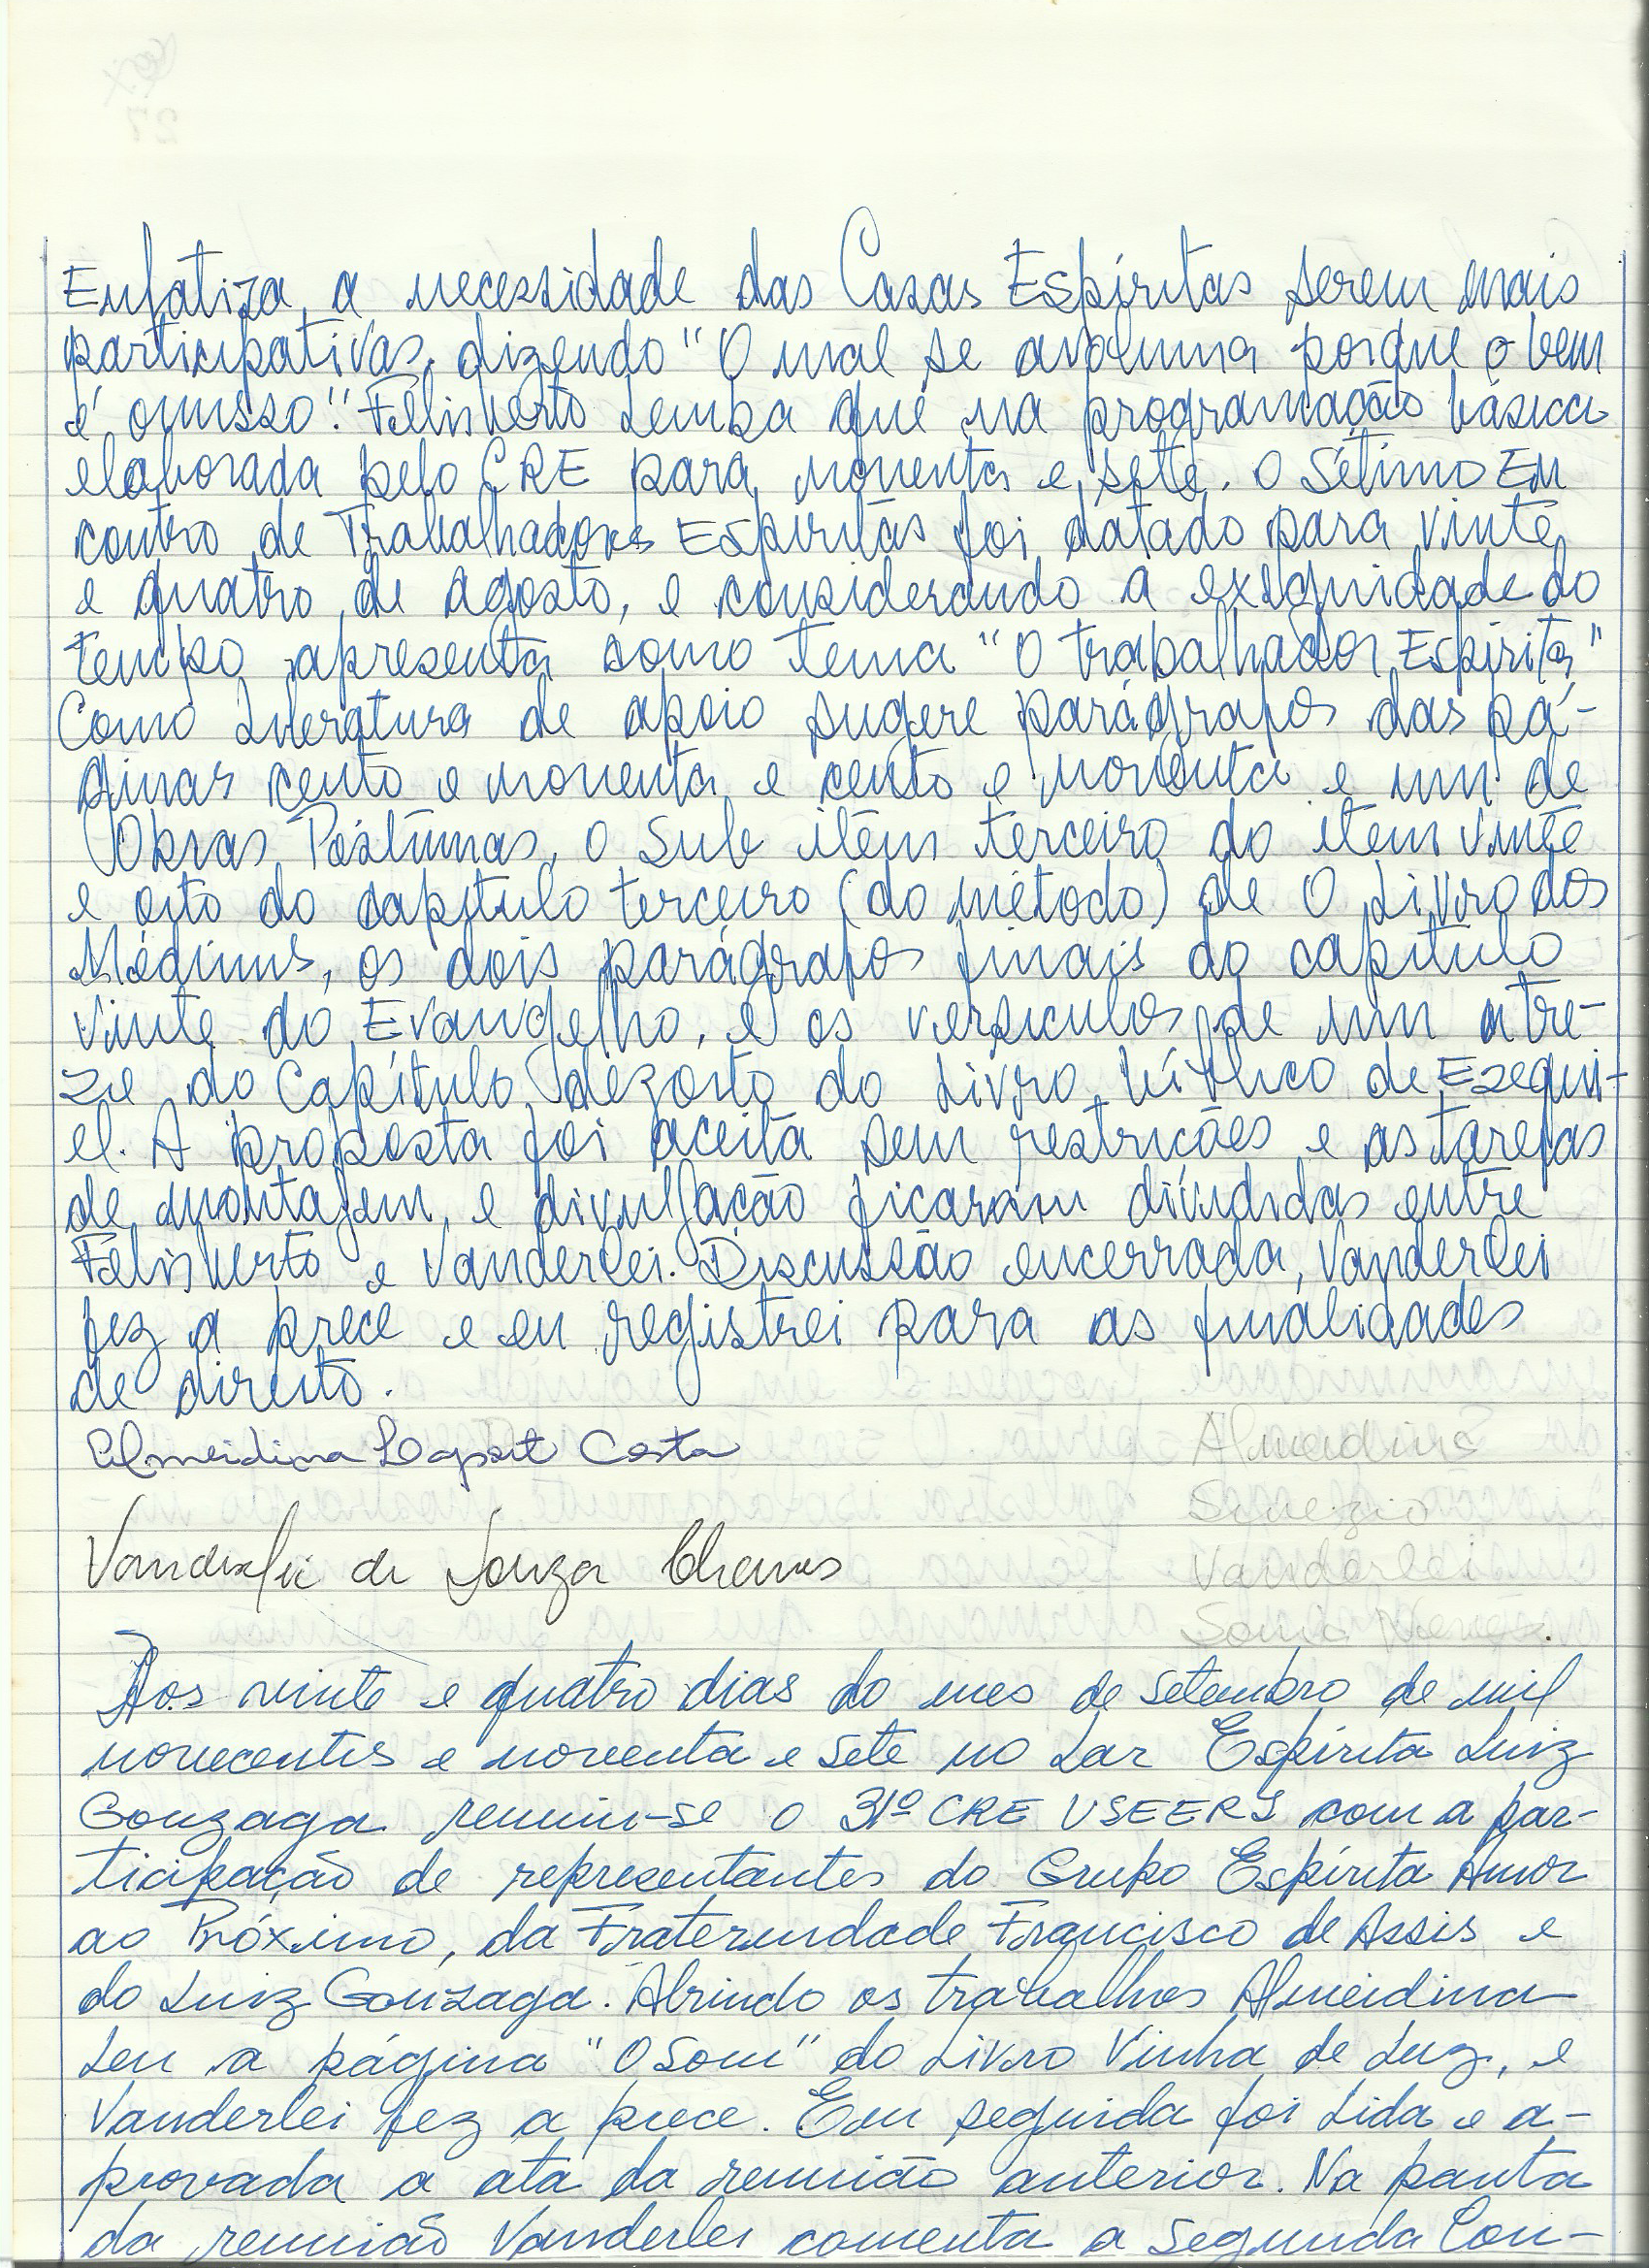 Enfatiza a necessidade das Casas Espíritas serem mais
participativas, dizendo "O mal se avoluma porque o bem
é omisso". Felisberto Lemba que na programação básica
elaborada pelo CRE para noventa e sete. O Sétimo En
contro de Trabalhadores Espíritas foi datado para vinte
e quatro de agosto, e considerando a exiguidade do
tempo apresenta como tema "O trabalhador Espírita"
Como Literatura de apoio sugere parágrafos das pá-
ginas cento e noventa e cento e noventa e um de
Obras Póstumas, o Sub item terceiro do item vinte
e oito do capítulo terceiro (do método) de O Livro dos
Médiuns, os dois parágrafos finais do capítulo
vinte do Evangelho, e os versículos de um a tre-
ze do Capítulo dezoito do Livro bíblico de Ezequi-
el. A proposta foi aceita sem restrições e as tarefas
de montagem e divulgação ficaram divididas entre
Felisberto e Vanderlei. Discussão encerrada, Vanderlei
fez a prece e eu registrei para as finalidades
de direito.
Almeidina Costa Almeidina
Sinezio
Vanderlei de Souza Chaves Vanderlei
Sonia
Aos vinte e quatro dias do mes de Setembro de mil
novecentos e noventa e sete no Lar Espírita Luiz
Gonzaga reuniu-se o 31º CRE USEERS com a par-
ticipação de representantes do Grupo Espírita Amor
ao Próximo, da Fraternidade Francisco de Assis e
do Luiz Gonzaga. Abrindo os trabalhos Almeidina
Leu a página "O Som" do Livro Vinha de Luz, e
Vanderlei fez a prece. Em seguida foi Lida e a-
provada a ata da reunião anterior. Na pauta
da reunião Vanderlei comenta a Segunda Con-